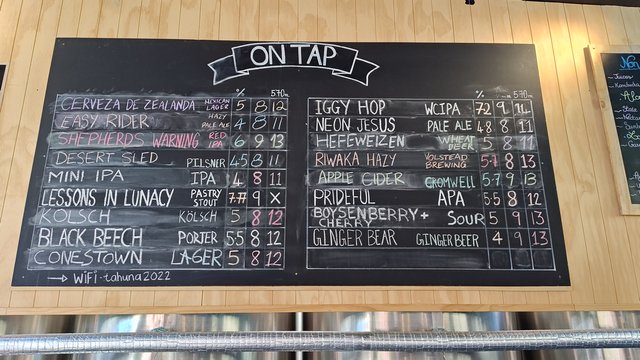 ON TAP
% 570ml
CERVEZA DE ZEALANDA MEXICAN LAGER 5 8 12
EASY RIDER HAZY PALE ALE 4 8 11
SHEPHERDS WARNING RED IPA 6 9 13
DESERT SLED PILSNER 4.5 8 11
MINI IPA IPA 4 8 11
LESSONS IN LUNACY PASTRY STOUT 7.7 9 X
KOLSCH KÖLSCH 5 8 12
BLACK BEECH PORTER 5.5 8 12
CONESTOWN LAGER 5 8 12
→ WiFi - tahuna2022
% 570ml
IGGY HOP WCIPA 7.2 9
NEON JESUS PALE ALE 4.8 8 11
HEFEWEIZEN WHEAT BEER 5 8 11
RIWAKA HAZY VOLSTEAD BREWING 5.7 8 13
APPLE CIDER CROMWELL 5.7 9 13
PRIDEFUL APA 5.5 8 12
BOYSENBERRY + CHERRY SOUR 5 9 13
GINGER BEAR GINGER BEER 4 9 13